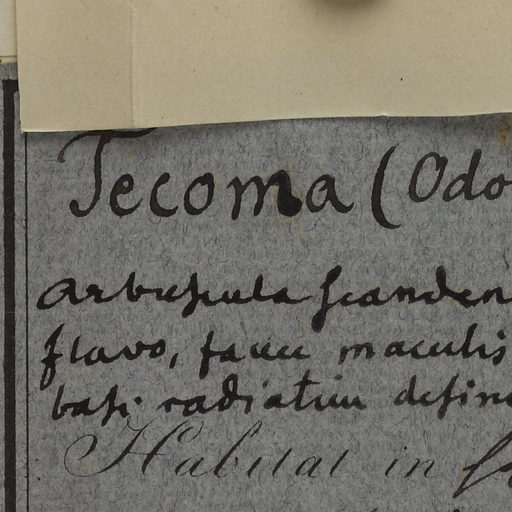 Tecoma (Odo
Arbuscula scanden
flavo, fauce maculis
basi radiatim desine
Habitat in